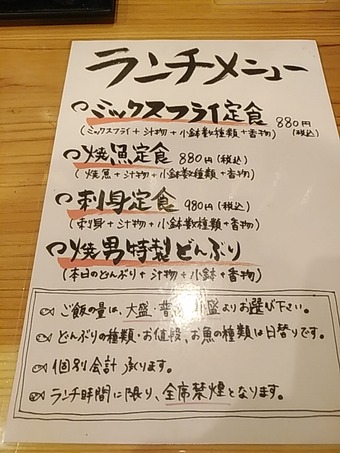 ランチメニュー
ミックスフライ定食 880円(税込)
(ミックスフライ+汁物+小鉢数種類+香物)
焼魚定食 880円(税込)
(焼魚+汁物+小鉢数種類+香物)
刺身定食 980円(税込)
(刺身+汁物+小鉢数種類+香物)
焼男特製どんぶり
(本日のどんぶり+汁物+小鉢+香物)
ご飯の量は、大盛・普通・小盛よりお選び下さい。
どんぶりの種類・お値段、お魚の種類は日替りです。
個別会計承ります。
ランチ時間に限り、全席禁煙となります。